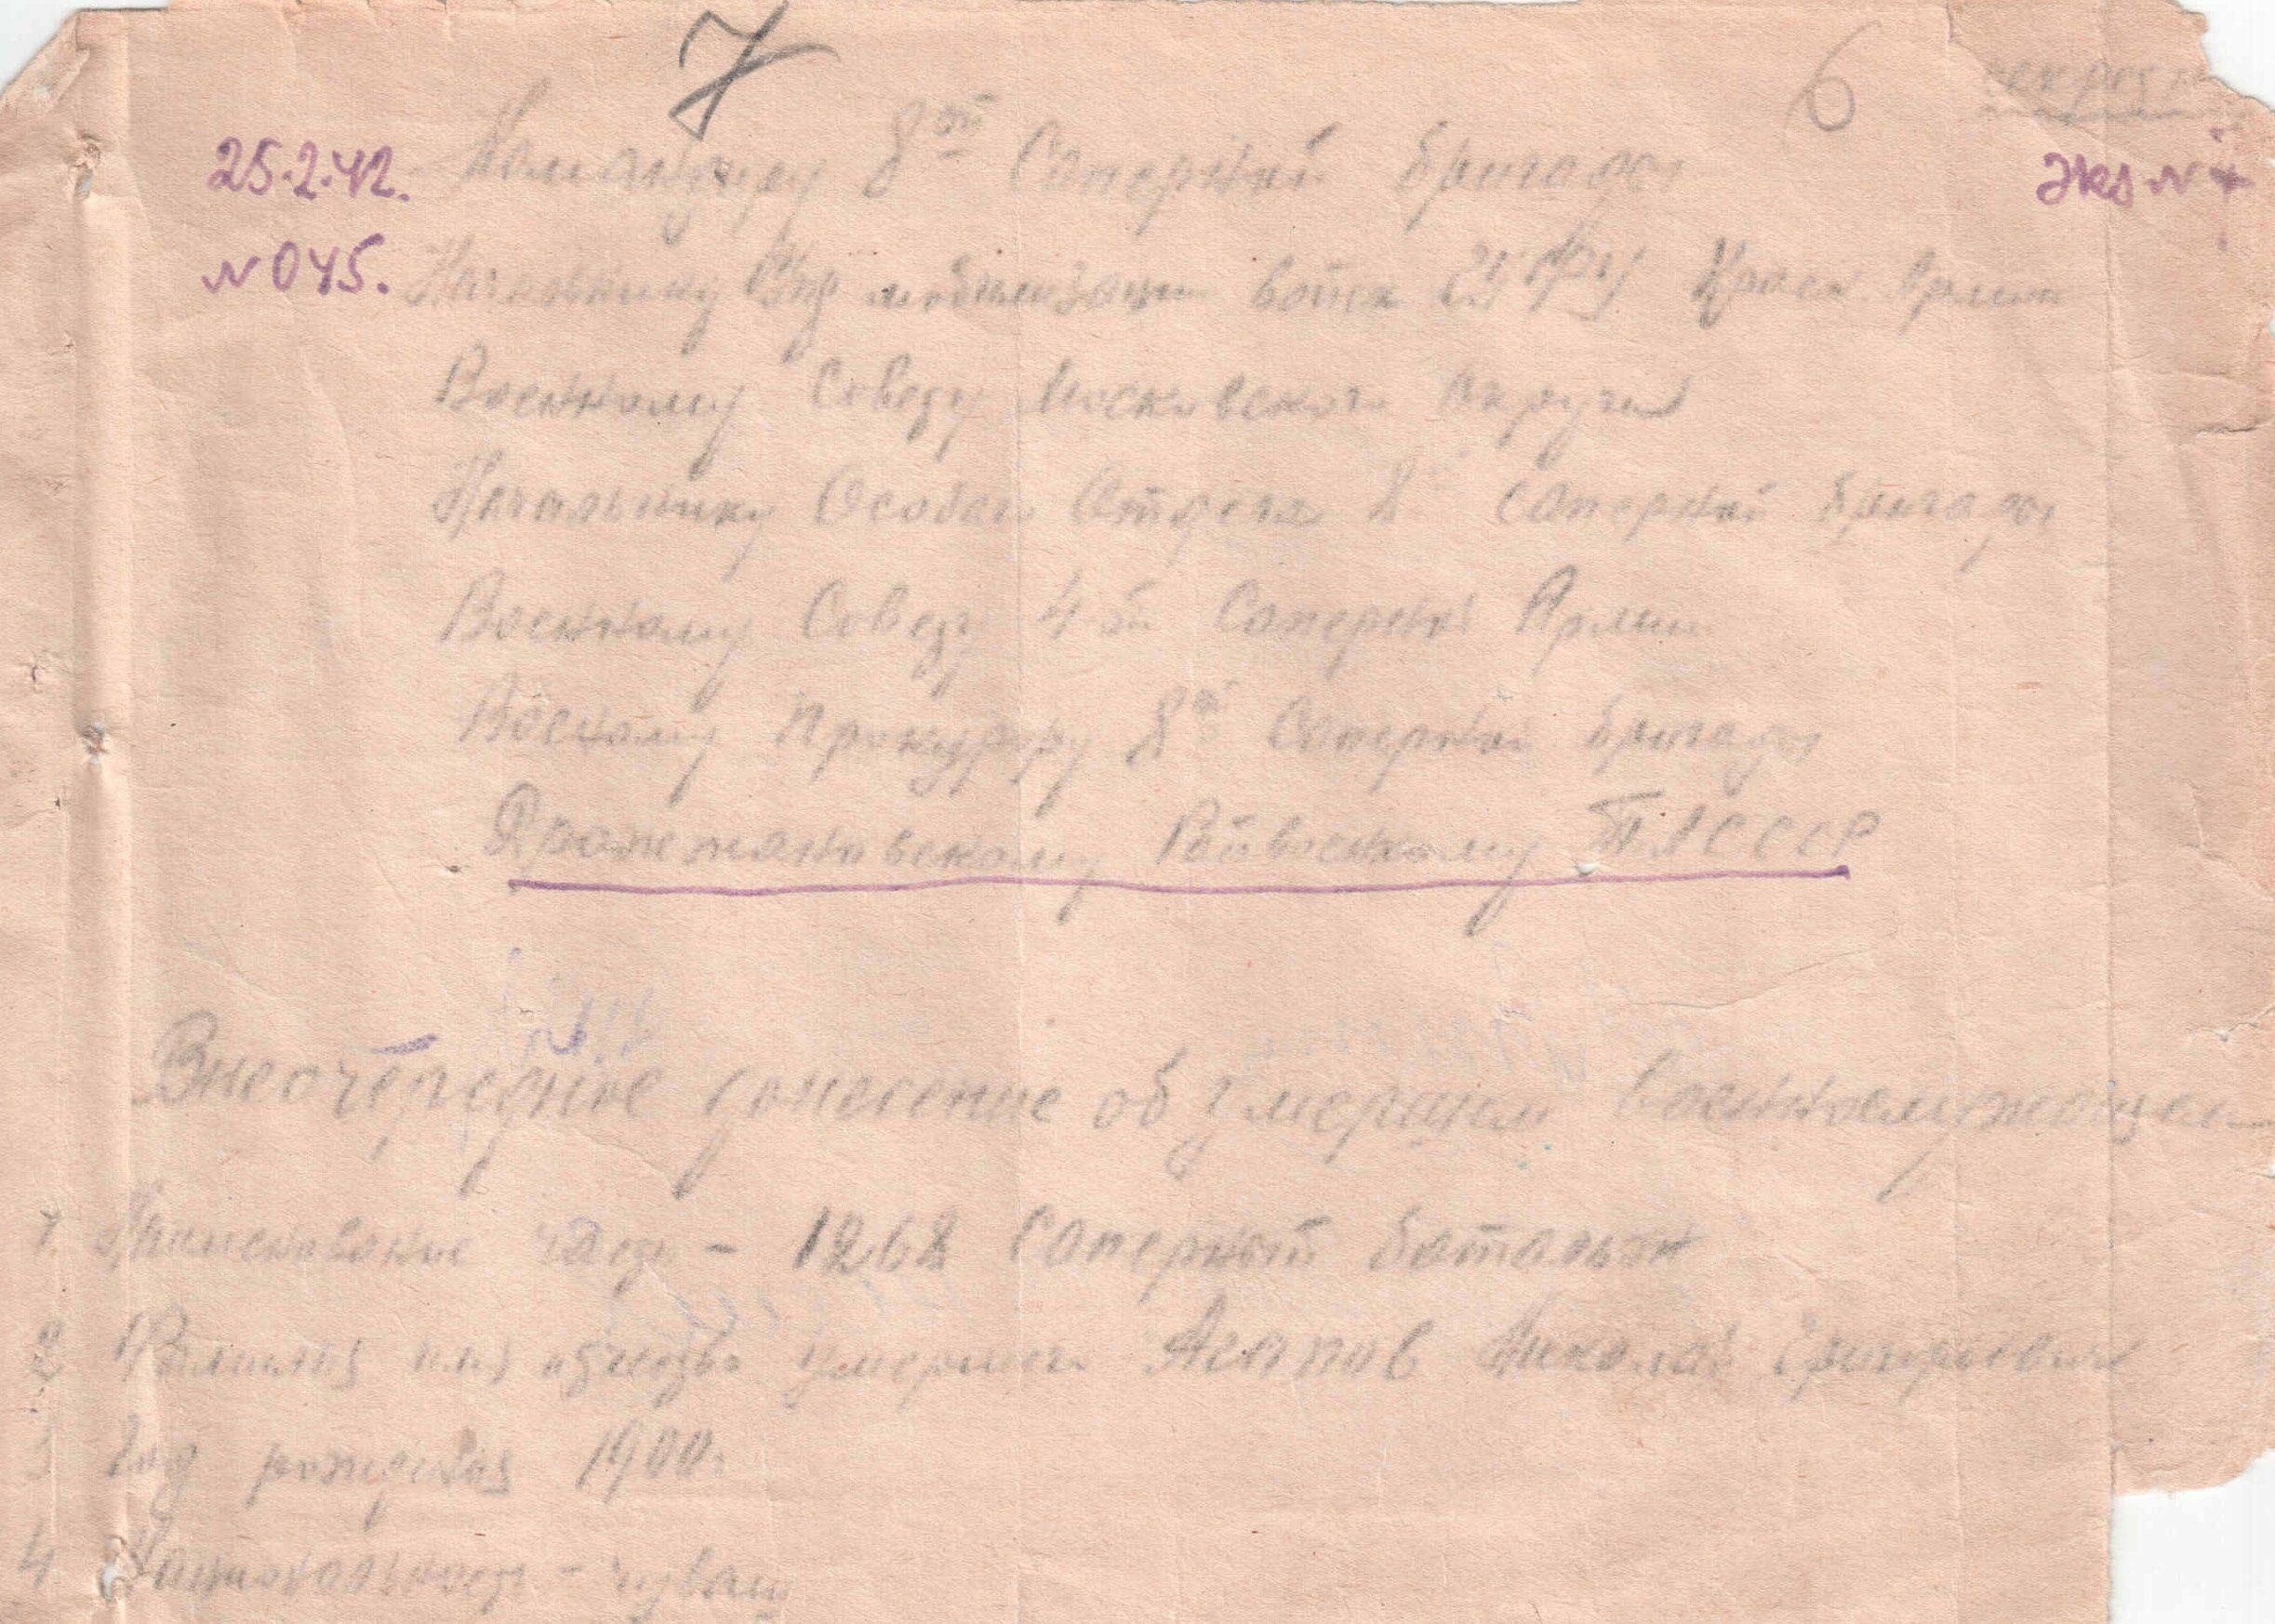 7
6
секретно
25.2.42. Командиру 8ой Саперной бригады
экз N
N 045. Начальнику мобилизации войск Красн. Армии
Военному Совету Московского округа
Начальнику Особого Отдела 8ой Саперной бригады
Военному Совету 4ой Саперной Армии
Военному Прокурору 8ой Саперной бригады
Дрожжановскому Райвоенкому ТАССР
Внеочередное донесение об умершем военнослужащем
1. Наименование части - 1268 Саперный батальон
2 Фамилия имя отчество умершего Агапов Николай Григорьевич
3 Год рождения 1900г
4 Национальность - чуваш